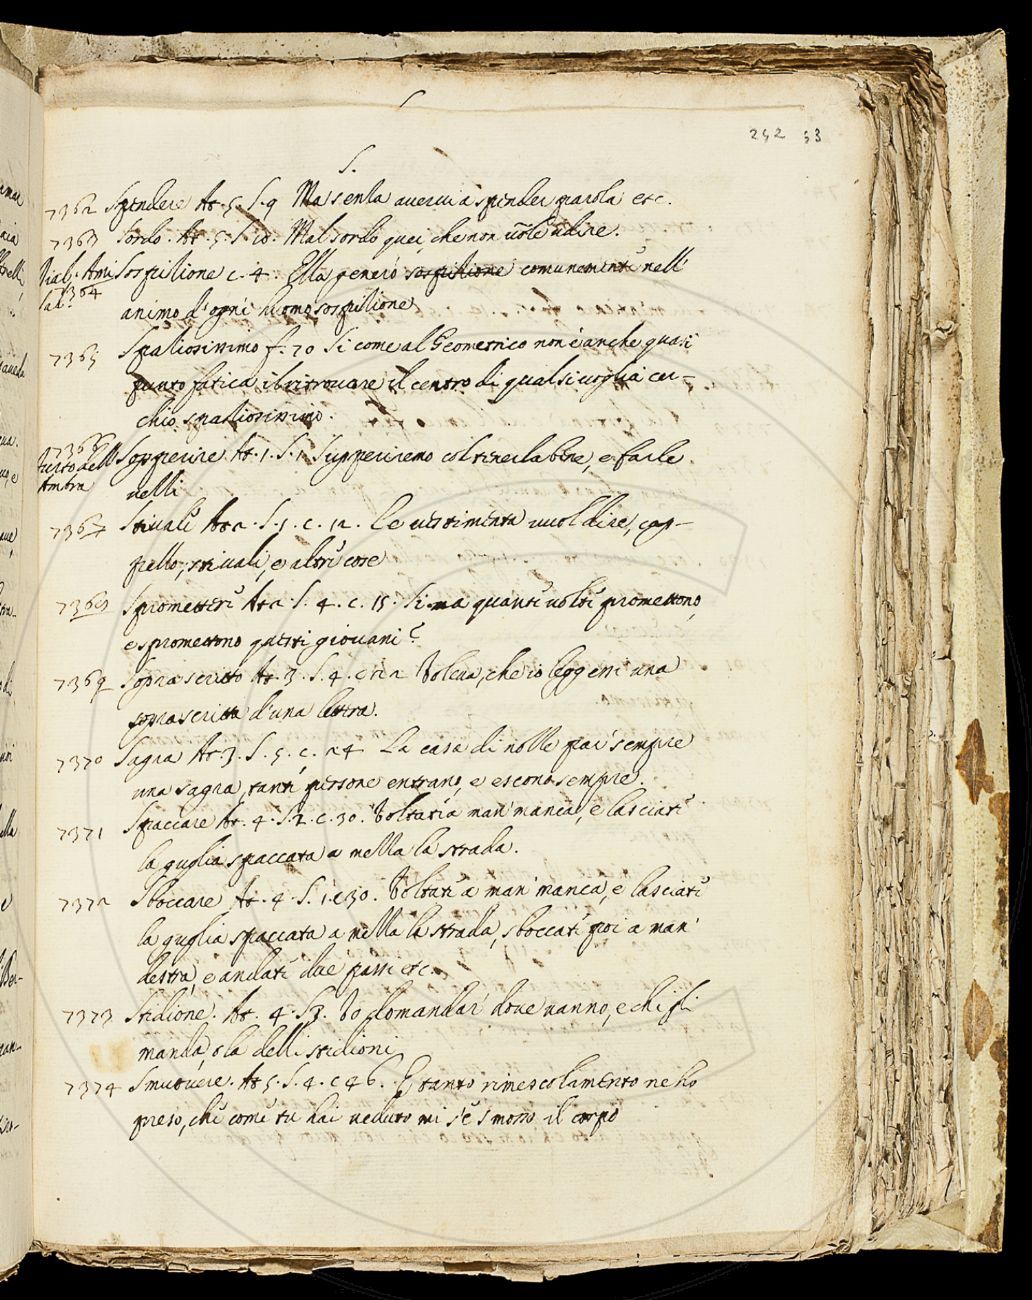 252 53
S.
7362 Spendere At. 5. S. 9 Ma senza averci a spender parola etc.
7363 Sordo. At. 5. S. 10. Mal sordo quei, che non uole udire.
Sospizione c. 4. Ella generò sospizione comunemente nell'
7364
animo d'ogni huomo sospizione
7365 Spaziosissimo f. 70 Si come al Geometrico non è anche quasi
punto fatica il ritrouare il centro di qualsiuoglia cer-
chio spaziosissimo.
7366 Sopperire At. 1. S. 1 Suppériremo col tinerla bene, e farle
Furto dell'
Ambra
uelli
7367 Stivali At 2. S. 5. c. 12. Le uestimenta uuol dire, cap-
pello, stiuali, e altre cose
7368 Spromettere At 2 S. 4. c. 15. Si ma quante uolte promettono,
e spromettono questi giouani?
7369 Soprascritto At. 3. S. 4. c 22 Voleua, che io leggessi una
soprascritta d'una lettera.
7370 Sagra At. 3. S. 5. c. 24 La casa di nolle par sempre
una sagra, tante persone entrano, e escono sempre.
7371 Spaccare At. 4. S. 2. c. 30. Voltati a man' manca, e lasciati
la guglia spaccata a mezza la strada.
7372 Sboccare At. 4. S. 1. c 30. Voltati a man' manca, e lasciati
la guglia spaccata a mezza la strada, sboccati poi a man'
destra, e andati due passi etc.
7373 Stidione. At. 4. S 3. Vo domandar' doue uanno, e chi gli
manda, ola delli stidioni
7374 Smuouere. At 5. S. 4. c 46. E tanto rimescolamento ne ho
preso, che come tu hai ueduto mi s'è smosso il corpo